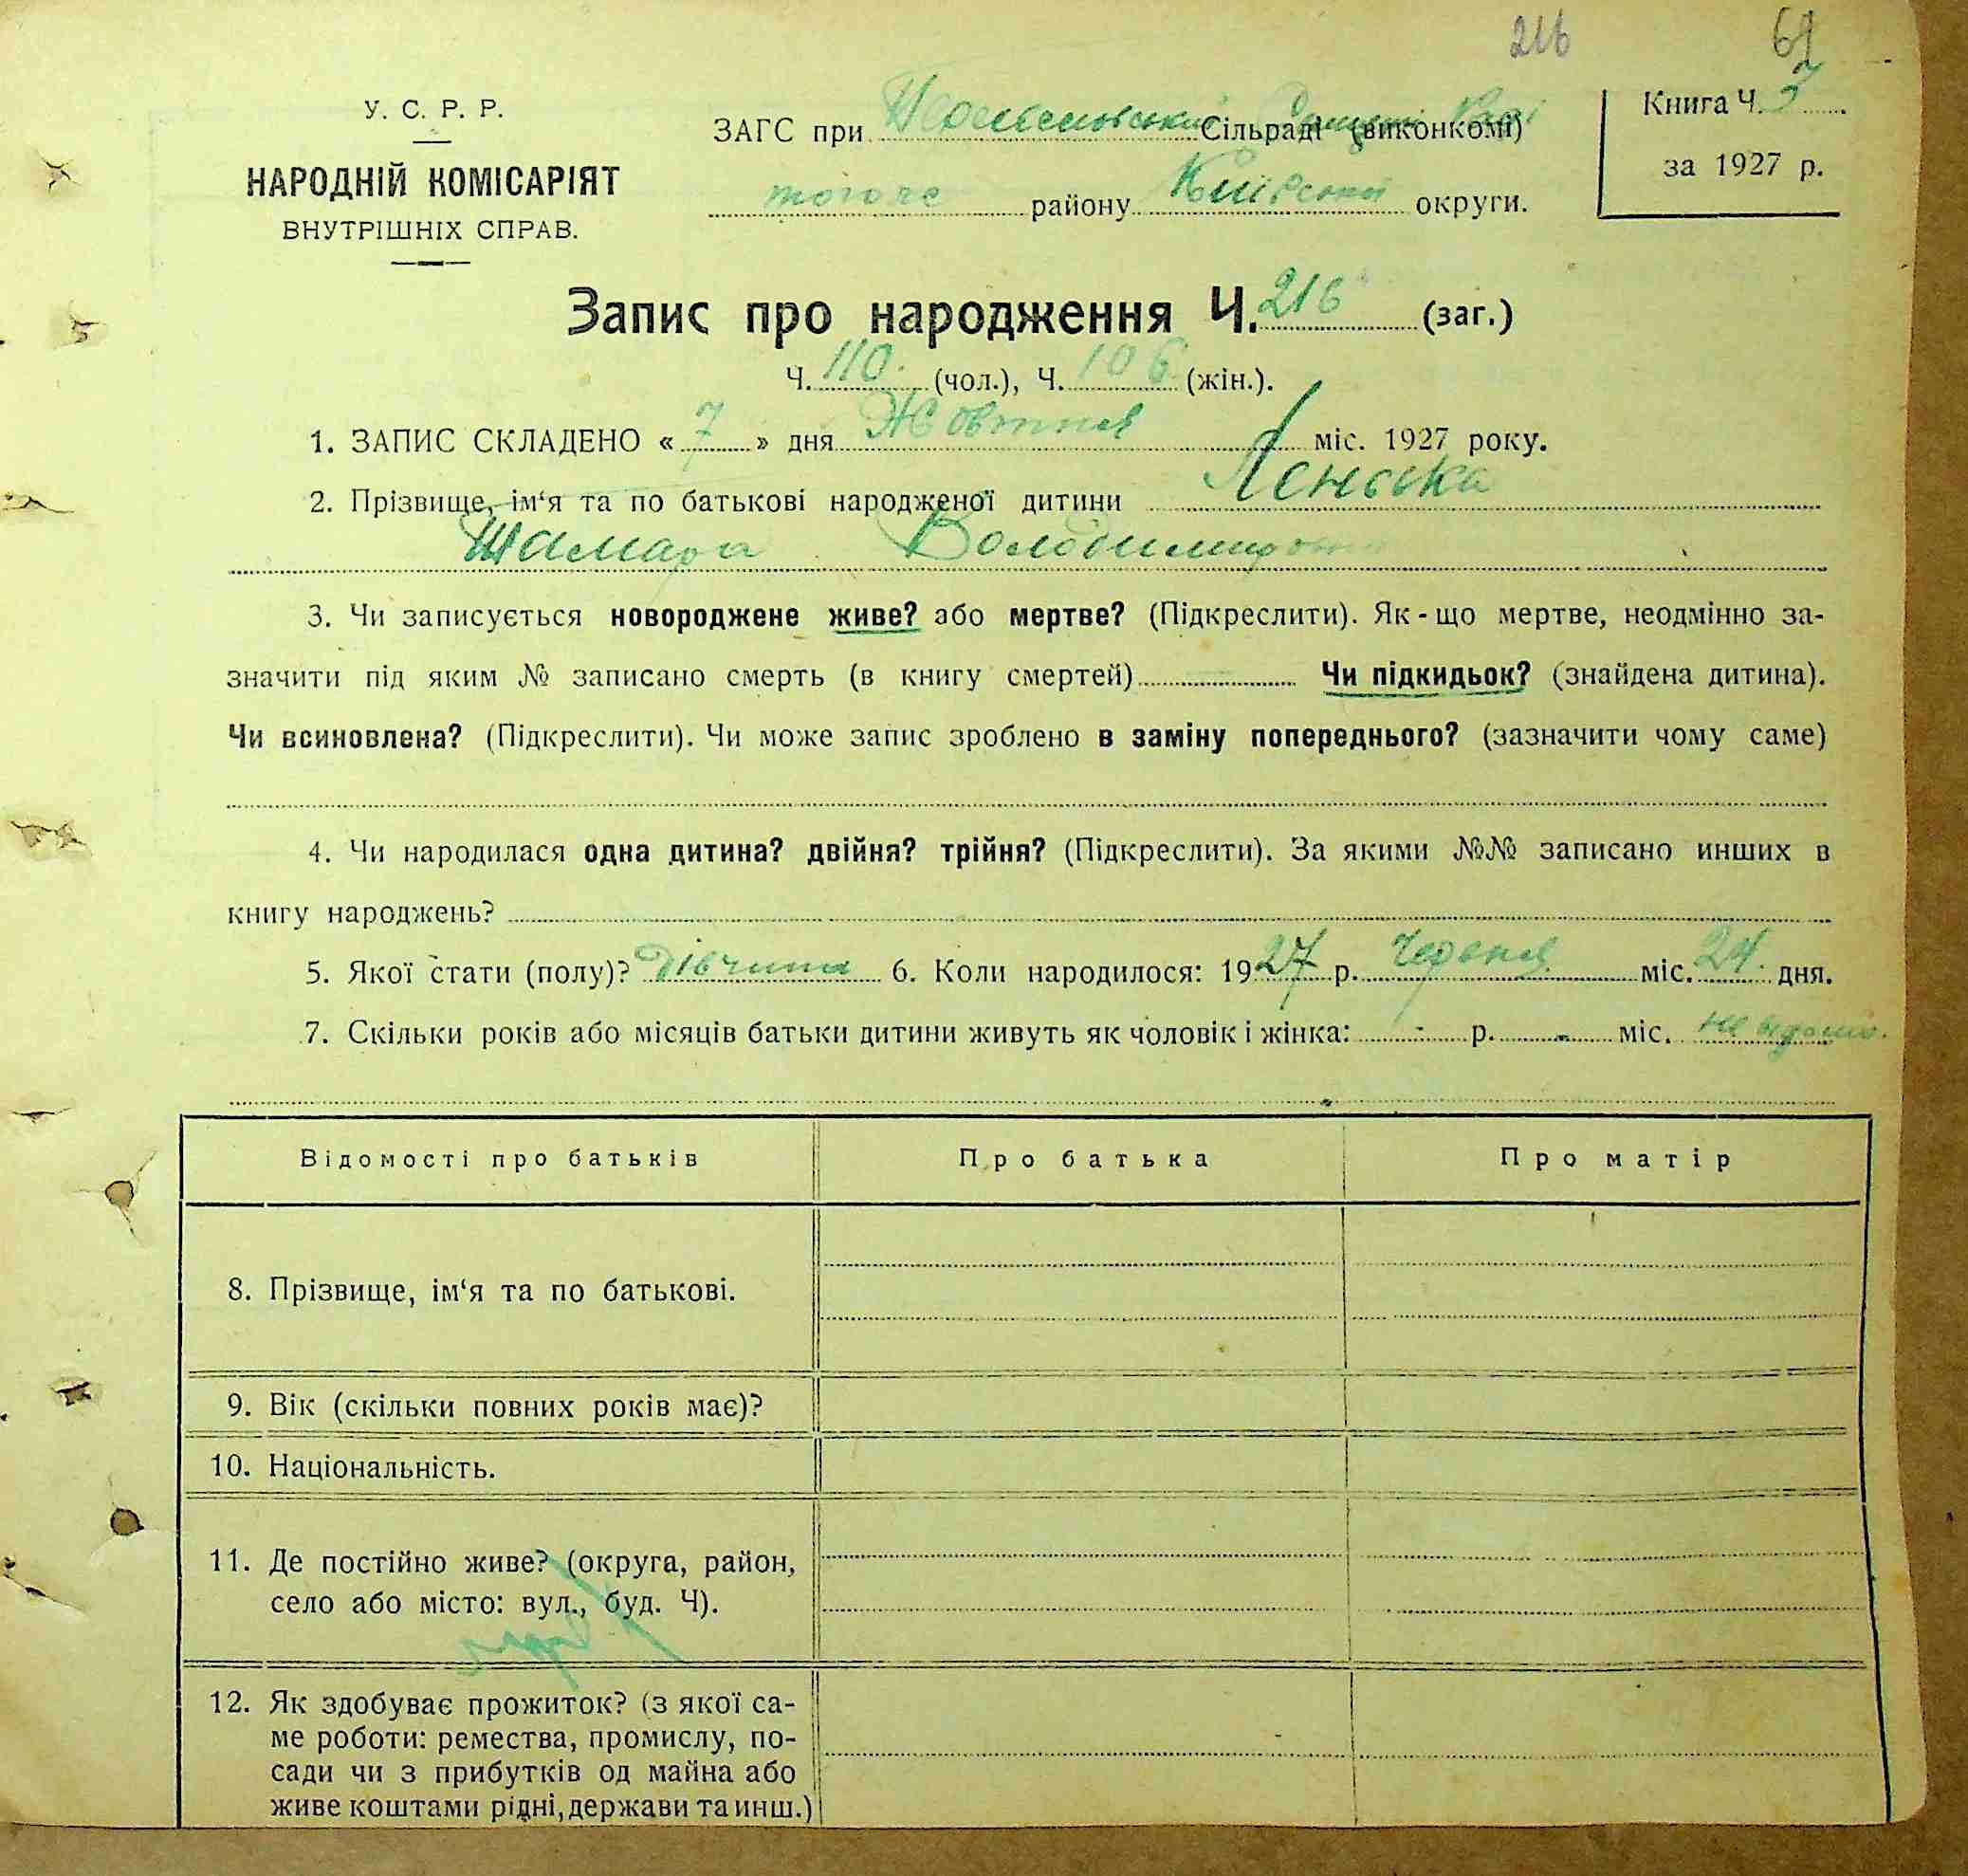 216 61
У. С. Р. Р.
НАРОДНІЙ КОМІСАРІЯТ
ВНУТРІШНІХ СПРАВ.
ЗАГС при Сільраді (виконкомі)
того ж району Київської округи.
Книга Ч.
за 1927 р.
Запис про народження Ч. 216 (заг.)
Ч. 110. (чол.), Ч. 106 (жін.).
1. ЗАПИС СКЛАДЕНО « 7 » дня Жовтня міс. 1927 року.
2. Прізвище, ім‘я та по батькові народженої дитини Ленська
Тамара Володимировна
3. Чи записується новороджене живе? або мертве? (Підкреслити). Як-що мертве, неодмінно за-
значити під яким № записано смерть (в книгу смертей) Чи підкидьок? (знайдена дитина).
Чи всиновлена? (Підкреслити). Чи може запис зроблено в заміну попереднього? (зазначити чому саме)
4. Чи народилася одна дитина? двійня? трійня? (Підкреслити). За якими №№ записано инших в
книгу народжень?
5. Якої стати (полу)? Дівчина 6. Коли народилося: 1927 р. Червня міс. 24 дня.
7. Скільки років або місяців батьки дитини живуть як чоловік і жінка: - р. - міс. не відомо.
Відомості про батьків Про батька Про матір
8. Прізвище, ім‘я та по батькові.
9. Вік (скільки повних років має)?
10. Національність.
11. Де постійно живе? (округа, район,
село або місто: вул., буд. Ч).
12. Як здобуває прожиток? (з якої са-
ме роботи: ремества, промислу, по-
сади чи з прибутків од майна або
живе коштами рідні, держави та инш.)